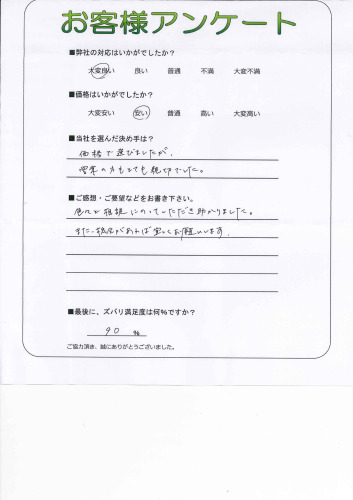 お客様アンケート
■弊社の対応はいかがでしたか?
大変良い 良い 普通 不満 大変不満
■価格はいかがでしたか?
大変安い 安い 普通 高い 大変高い
■当社を選んだ決め手は?
価格で選びましたが、
営業の方もとても親切でした。
■ご感想・ご要望などをお書き下さい。
色々と相談にのっていただき助かりました。
また、機会があれば宜しくお願いします。
■最後に、ズバリ満足度は何%ですか?
90 %
ご協力頂き、誠にありがとうございました。